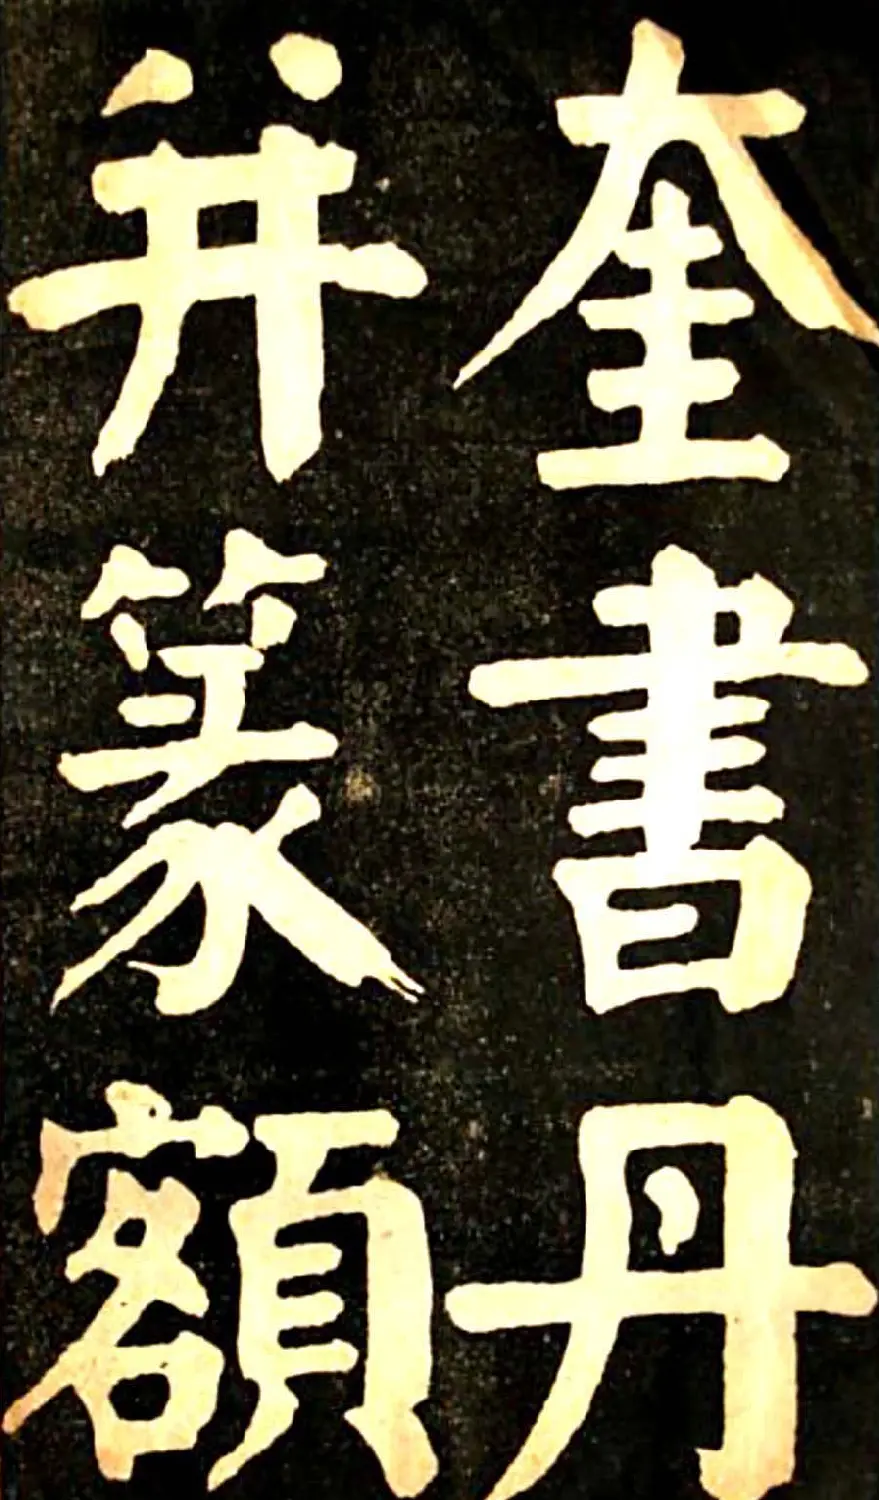 奎書丹
并篆額